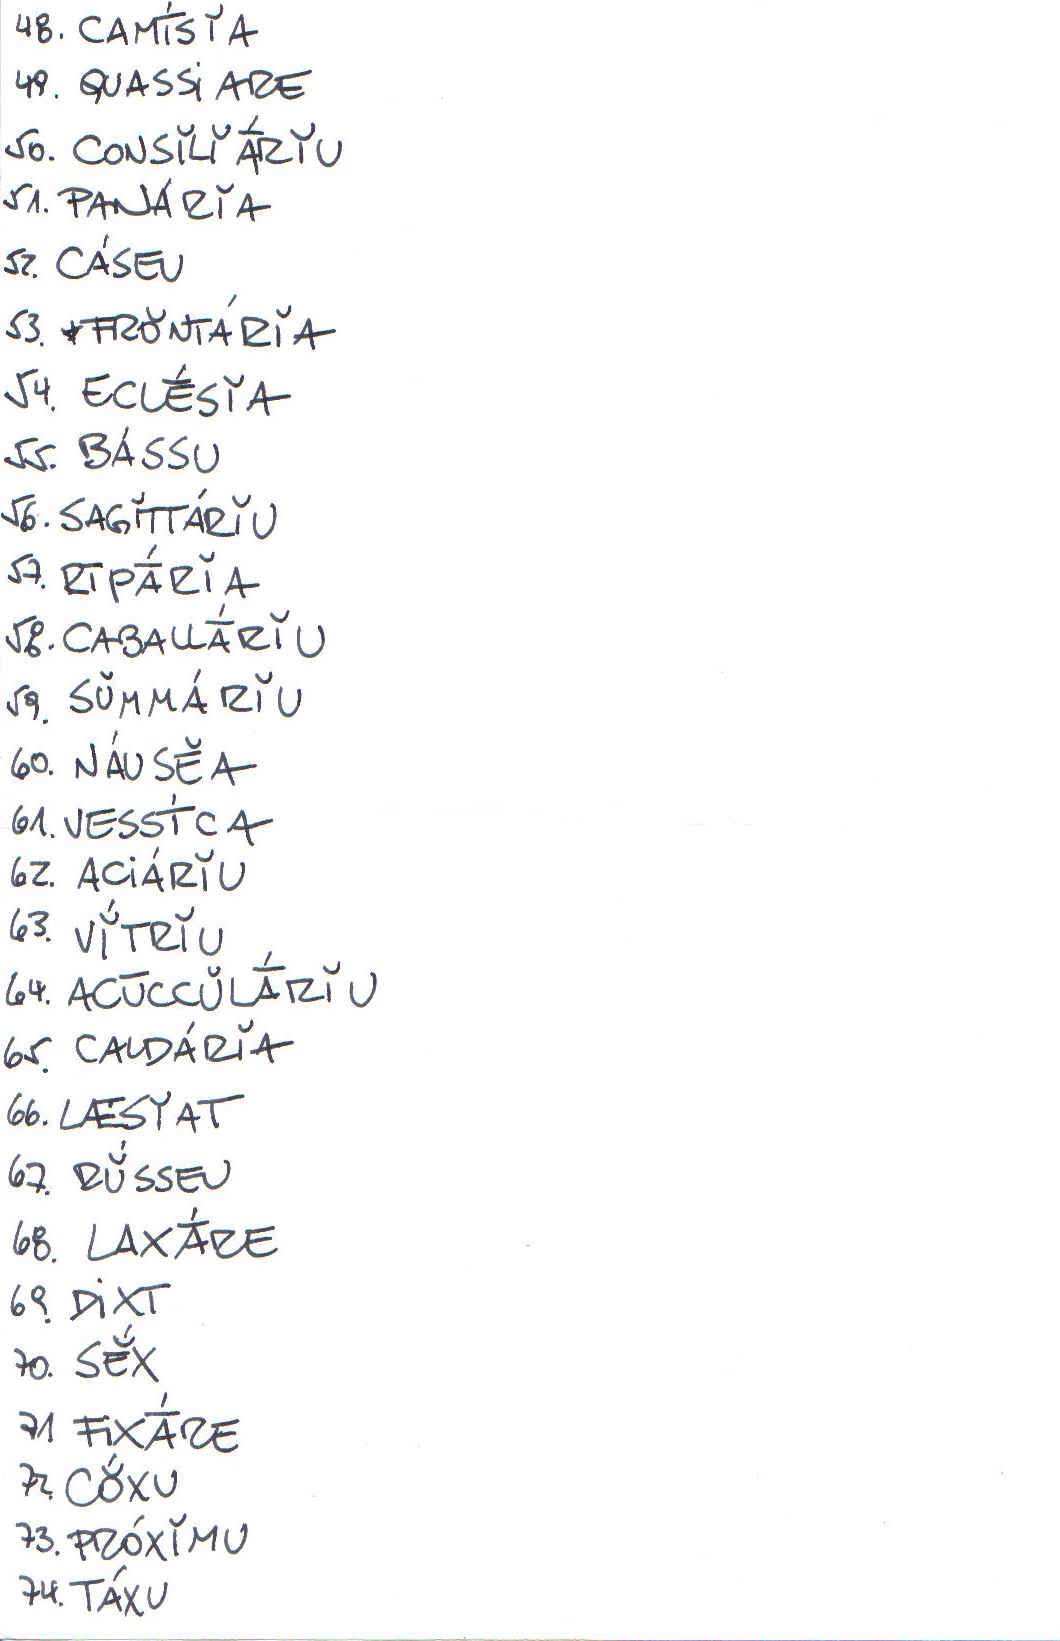 48. CAMĪ́SĬA
49. QUASSiARE
50. CONSĬLĬĀ́RĬU
51. PANÁRĬA
52. CÁSEU
53. *FRŎNTÁRĬA
54. ECLḖSĬA
55. BÁSSU
56. SAGĬTTÁRĬU
57. RĪPĀ́RĬA
58. CABALLĀ́RĬU
59. SŬMMÁRĬU
60. NÁUSĔA
61. VESSĪ́CA
62. ACiÁRĬU
63. VĬ́TRĬU
64. ACŪCCŬLĀ́RĬU
65. CALDÁRĬA
66. LÆSĬAT
67. RŬ́SSEU
68. LAXĀ́RE
69. DiXT
70. SĔ́X
71 FiXĀ́RE
72. CŎ́XU
73. PRÓXĬMU
74. TÁXU